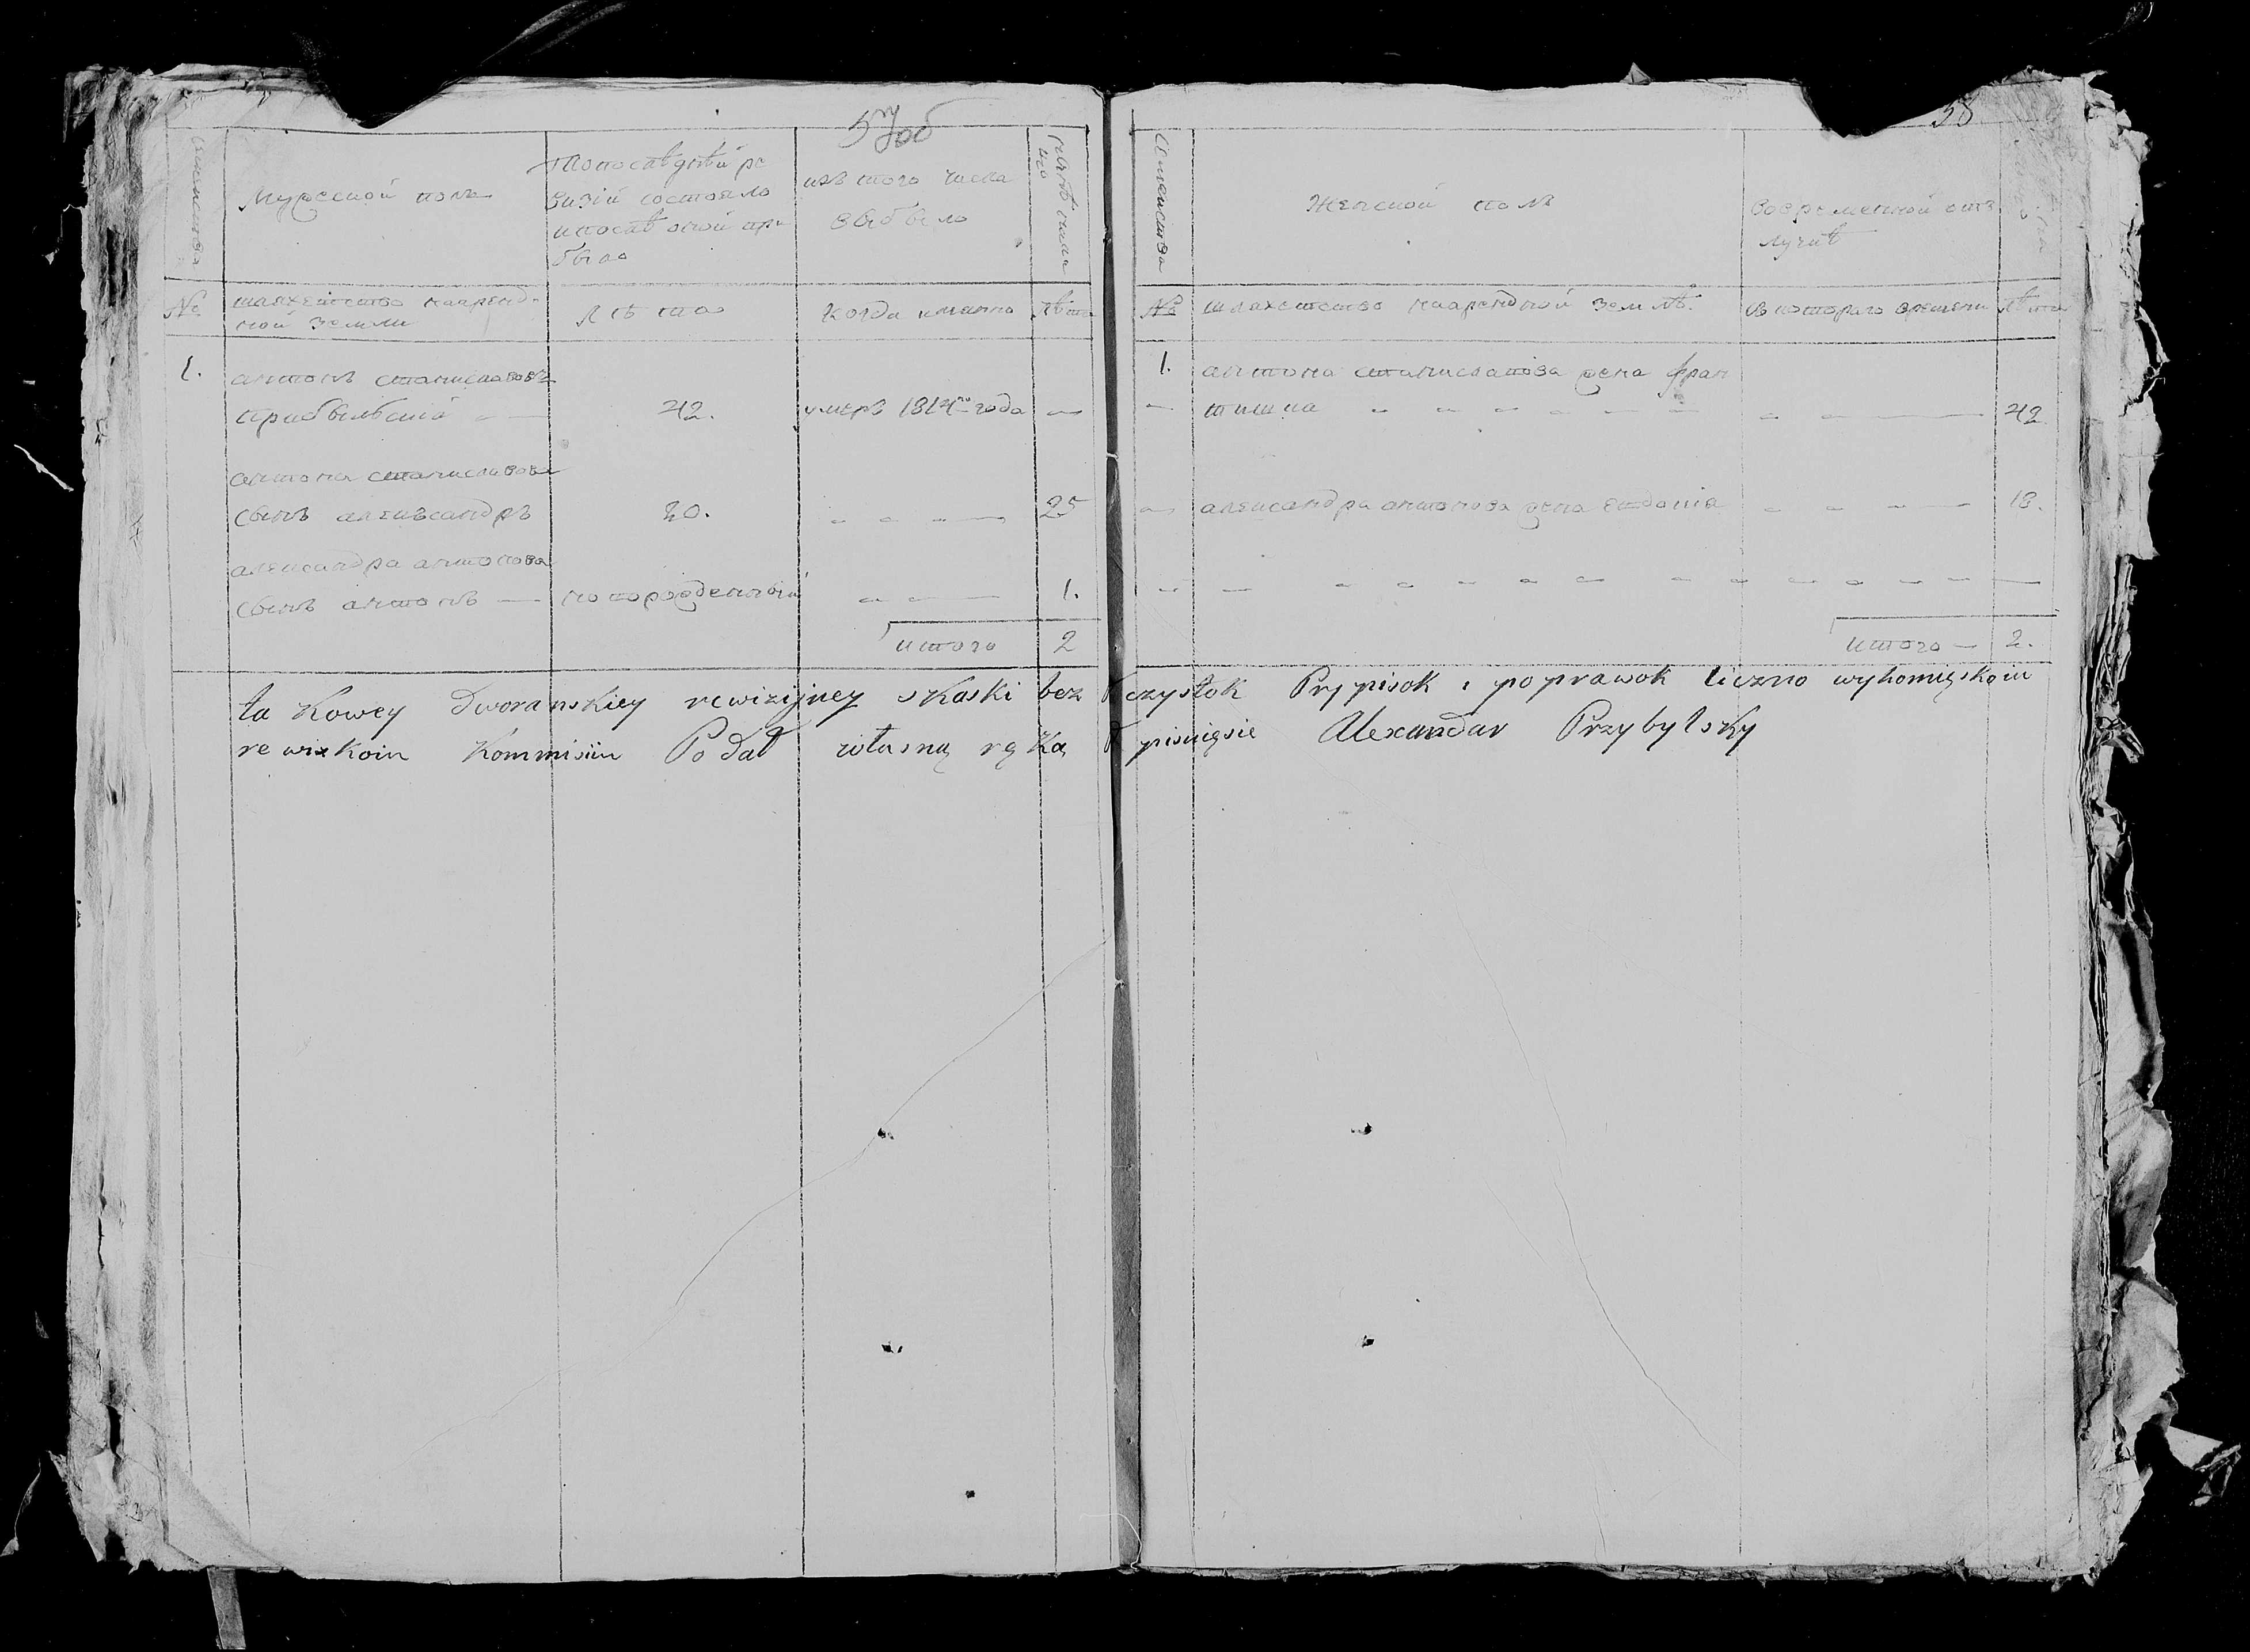 57об
семейства
Мужеской полъ
По последней ре
визiй состояло
и после оной при
было
изъ того числа
выбыло
№
шляхетство нааренд-
ной земли
Лѣта
когда имянно
лѣта
1.
антонъ станиславовъ
прибыльскiй
42.
умеръ 1814го года
антона станиславова
сынъ александръ
20.
25
александра антонова
сынъ антонъ
новорожденный
1.
итого 2
58
Семейства
Женской полъ
Во временной отъ
лучке
№
шляхетство наарендной землѣ.
Съ котораго времени
лѣта
1.
антона станиславова жена фран
тишка
42
александра антонова жена
18.
итого — 2.
takowey Dworanskiey rewizijney skaski bez Pczystok Prypisok i poprawok liczno wyhomięskoiu
rewizkoin Kommisiin Podał własną ręką Ppisuięsie Alexandar Przybylsky